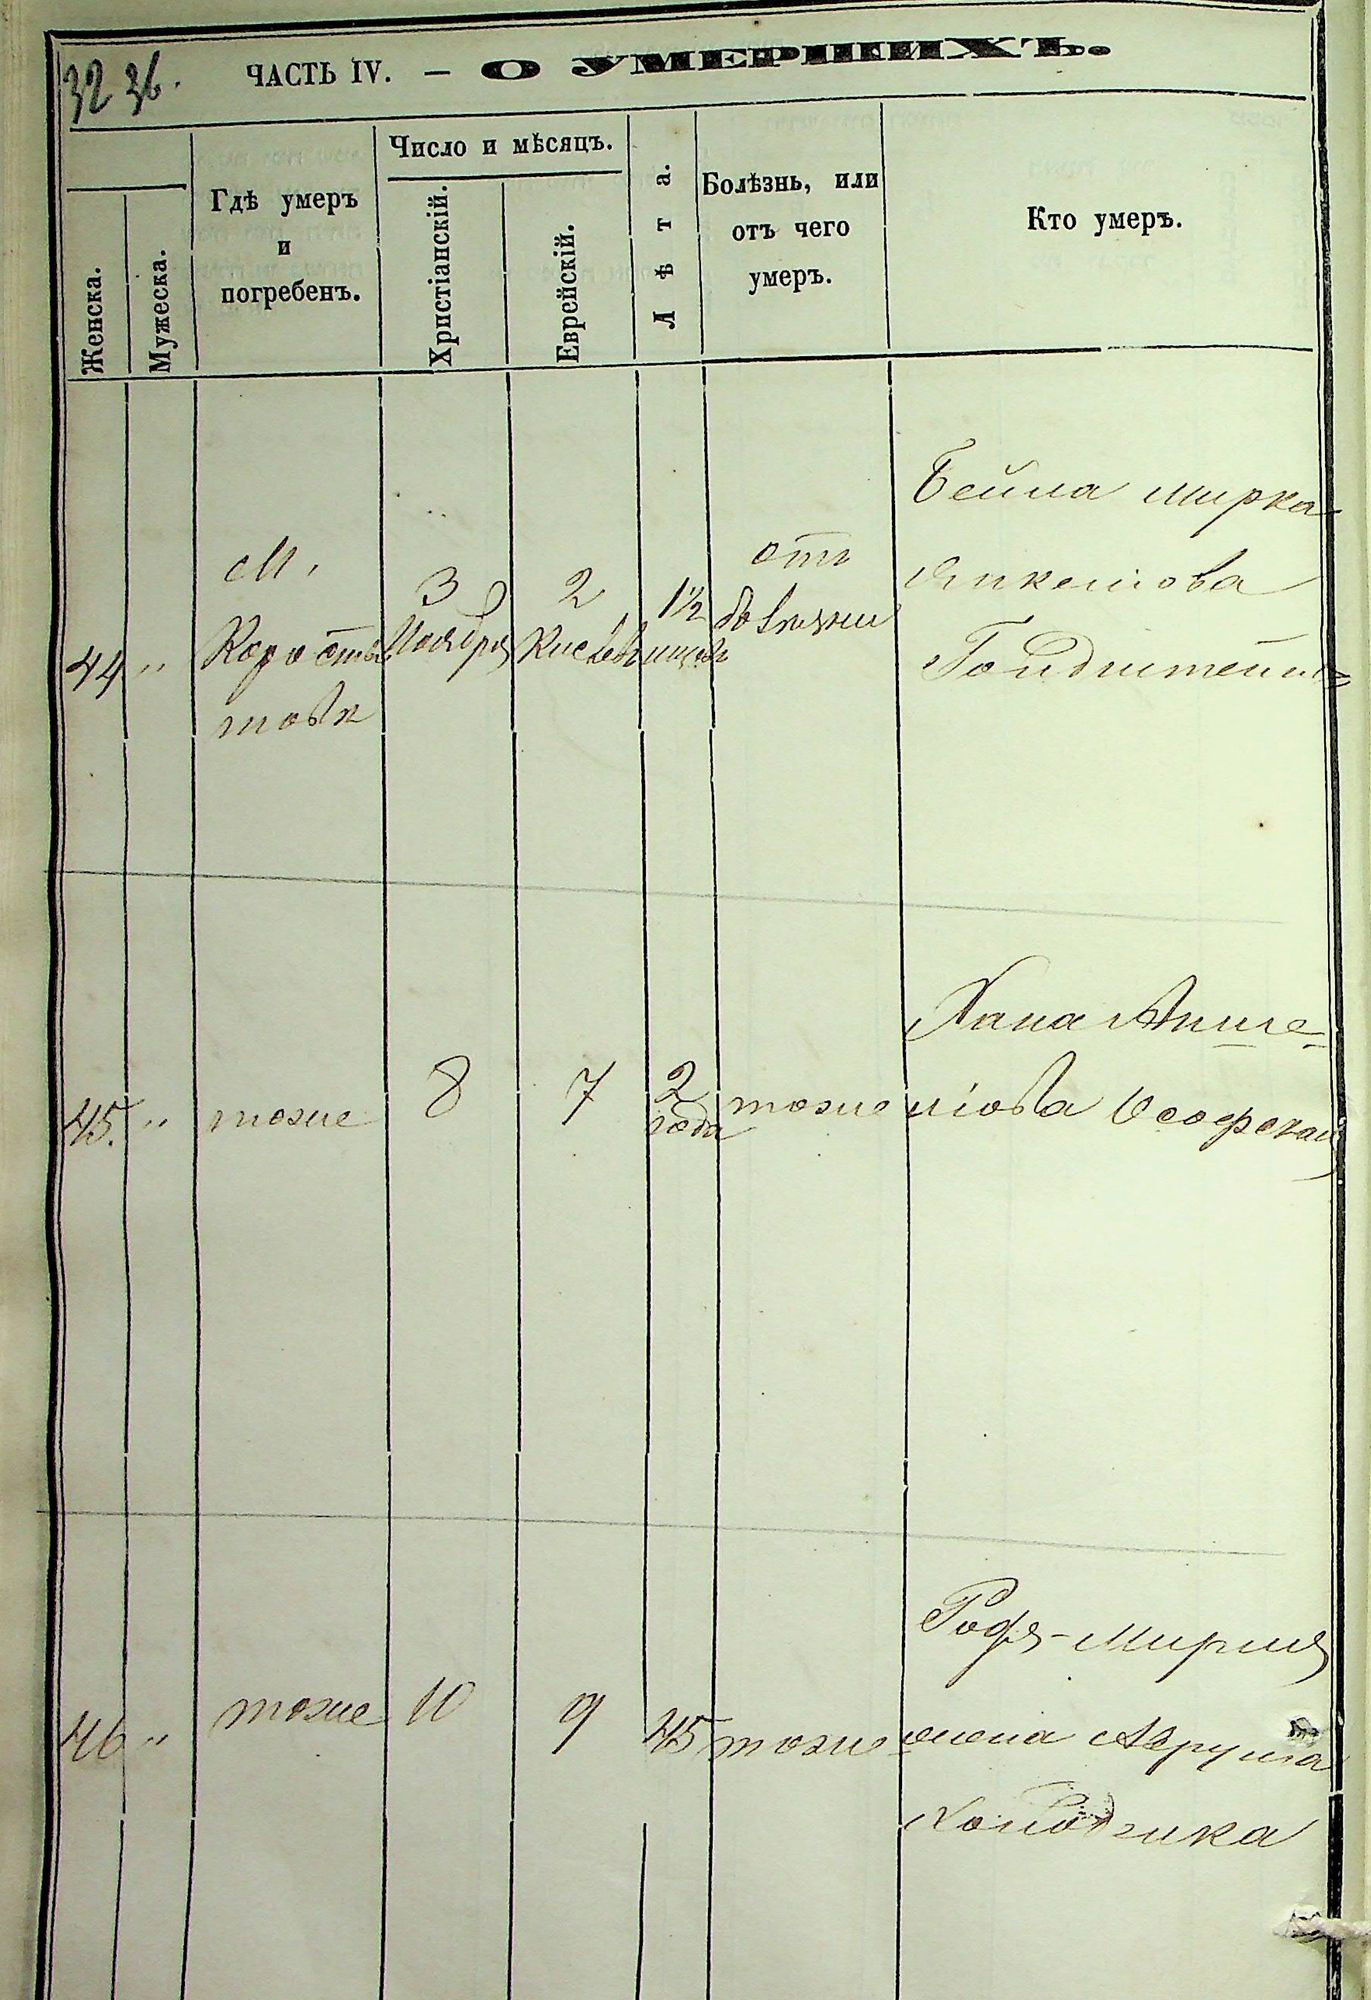 32 36.
ЧАСТЬ IV. — О УМЕРШИХЪ.
Женска.
Мужеска.
Гдѣ умеръ
и
погребенъ.
Число и мѣсяцъ.
Христіанскій.
Еврейскій.
Лѣта.
Болѣзнь, или
отъ чего
умеръ.
Кто умеръ.
44
"
М.
Коросты
шовѣ
3
Ноября
2
Кислевъ
1½
отъ
болѣзни
Бейла Мирка
Янкелова
Гольдштейнъ
45.
"
тоже
8
7
2
года
тоже
Хана
Осовская
46
"
тоже
10
9
45
тоже
жена Аврума